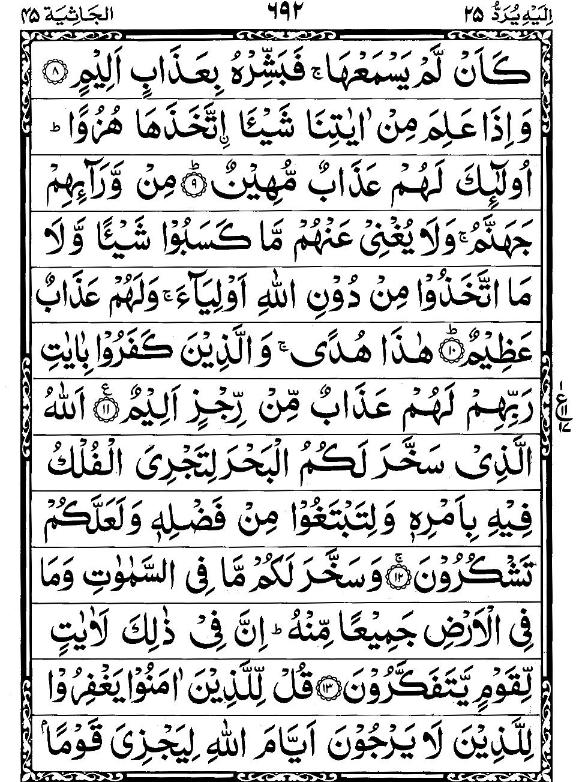 اِلَيْهِ يُرَدُّ ٢٥ ٦٩٢ الجاثية ٤٥
كَاَنْ لَّمْ يَسْمَعْهَا ۚ فَبَشِّرْهُ بِعَذَابٍ اَلِيْمٍ ۝٨
وَاِذَا عَلِمَ مِنْ اٰيٰتِنَا شَيْـًٔا اِۨتَّخَذَهَا هُزُوًا ؕ
اُولٰٓئِكَ لَهُمْ عَذَابٌ مُّهِيْنٌ ۝٩ؕ مِنْ وَّرَآئِهِمْ
جَهَنَّمُ ۚ وَلَا يُغْنِيْ عَنْهُمْ مَّا كَسَبُوْا شَيْـًٔا وَّلَا
مَا اتَّخَذُوْا مِنْ دُوْنِ اللّٰهِ اَوْلِيَآءَ ۚ وَلَهُمْ عَذَابٌ
عَظِيْمٌ ۝١٠ؕ هٰذَا هُدًى ۚ وَالَّذِيْنَ كَفَرُوْا بِاٰيٰتِ
رَبِّهِمْ لَهُمْ عَذَابٌ مِّنْ رِّجْزٍ اَلِيْمٌ ۝١١ۧ اَللّٰهُ
الَّذِيْ سَخَّرَ لَكُمُ الْبَحْرَ لِتَجْرِيَ الْفُلْكُ
فِيْهِ بِاَمْرِهٖ وَلِتَبْتَغُوْا مِنْ فَضْلِهٖ وَلَعَلَّكُمْ
تَشْكُرُوْنَ ۝١٢ۚ وَسَخَّرَ لَكُمْ مَّا فِي السَّمٰوٰتِ وَمَا
فِي الْاَرْضِ جَمِيْعًا مِّنْهُ ؕ اِنَّ فِيْ ذٰلِكَ لَاٰيٰتٍ
لِّقَوْمٍ يَّتَفَكَّرُوْنَ ۝١٣ قُلْ لِّلَّذِيْنَ اٰمَنُوْا يَغْفِرُوْا
لِلَّذِيْنَ لَا يَرْجُوْنَ اَيَّامَ اللّٰهِ لِيَجْزِيَ قَوْمًۢا